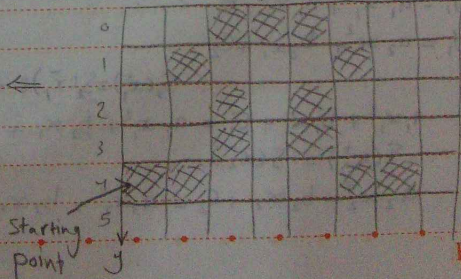 0
1
2
3
4
5
Starting
point
y